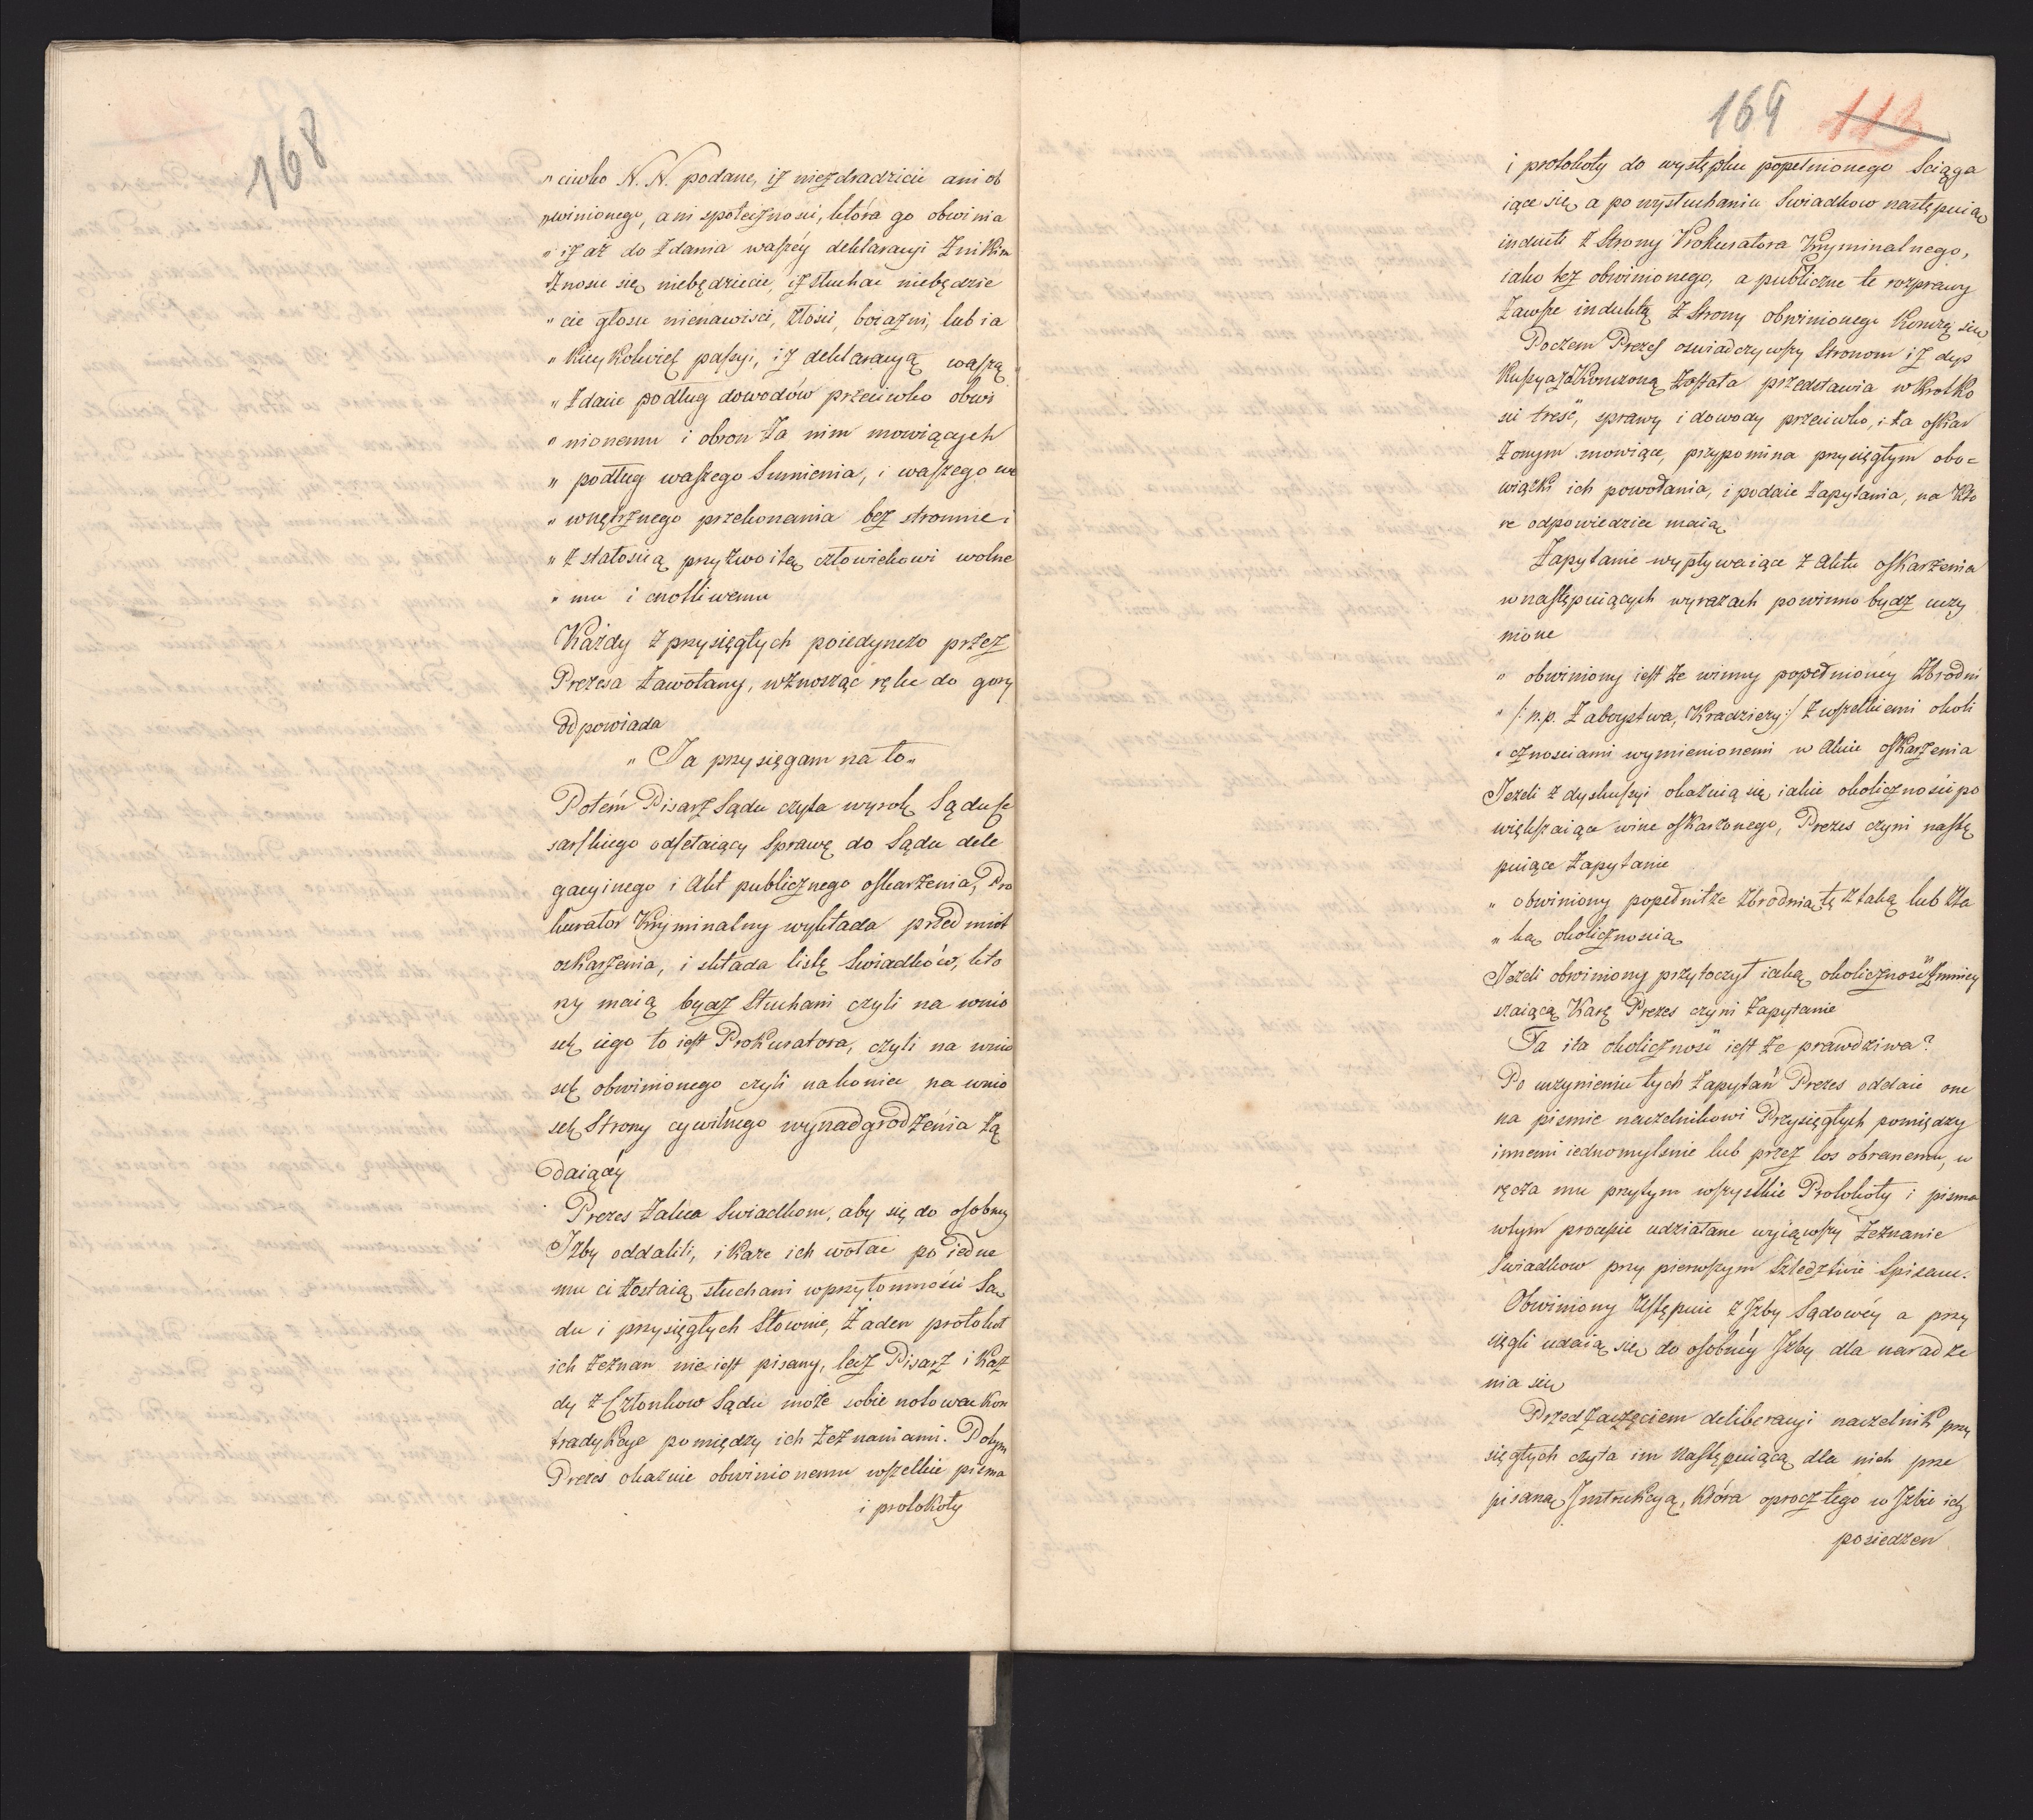 168
„ ciwko N. N. podane, iż niezdradzicie ani ob
„ winionego, ani społeczności, która go obwinia
„ iż aż do zdania waszéy deklaracyi z nikim
znosic się niebędziecie, iż słuchac niebędzie
„ cie głosu nienawisci, złości, boiazni, lub ia
„ kieykolwiek passyi, iż deklaracyą waszą
„ zdacie podług dowodów przeciwko obwi
„ nionemu i obron za nim mowiących
„ podług waszego Sumienia, i waszego we
„ wnętrznego przekonania bez stronnie i
„ z stałoscią przyzwoitą człowiekowi wolne
„ mu i cnotliwemu
Każdy z przysięgłych poiedynczo przez
Prezesa zawołany, wznosząc rękę do gory
odpowiada
„ Ja przysięgam na to „
Potém Pisarz Sądu czyta wyrok Sądu Ce
sarskiego odsełaiący Sprawę do Sądu dele
gacyinego i Akt publicznego oskarżenia, Pro
kurator Kryminalny wykłada przedmiot
oskarżenia, i składa listę Swiadków, któ
rzy maią bydz słuchani czyli na wnio
sek iego to iest Prokuratora, czyli na wnio
sek obwinionego czyli nakoniec na wnio
sek Strony cywilnego wynadgrodzenia żą
daiącéy
Prezes zaleca Swiadkom, aby się do osobney
Izby oddalili, i każe ich wołac po iedne
mu ci zostaią słuchani w przytomności Są
du i przysięgłych Słownie, Żaden protokoł
ich zeznan nie iest pisany, lecz Pisarz i Każ
dy z Członkow Sądu może sobie notowac kon
tradykcye pomiędzy ich zeznaniami. Potym
Prezes okazuie obwinionemu wszelkie pisma
i protokoły
169 113
i protokoły do występku popełnionego Sciąga
iące się, a po wysłuchaniu Swiadkow następuią
indukta z Strony Prokuratora Kryminalnego,
iako też obwinionego, a publiczne te rozprawy
zawsze induktą z Strony obwinionego Konczą się
Poczem Prezes oswiadczywszy Stronom iż dys
kussya zakonczoną została przedstawia w krotko
sci treść, sprawy i dowody przeciwko, i za oskar
żonym mowiące, przypomina przysięgłym obo=
wiązki ich powołania, i podaie zapytania, na kto
re odpowiedziec maią
Zapytanie wypływaiące z Aktu oskarzenia
w następuiących wyrazach powinno bydz uczy
nione
„ obwiniony iest że winny popełnionéy Zbrodni
„ /: n.p. Zaboystwa, Kradzieży :/ z wszelkiemi okoli
„ cznosciami wymienionemi w Akcie oskarzenia
Jeżeli z dyskussyi okazuią się iakie okoliczności po
większaiące winę oskarzonego, Prezes czyni nastę
puiące zapytanie
„ obwiniony popełnił że zbrodnią tę z taką lub z ta
„ ką okolicznoscią
Jeżeli obwiniony przytoczył iaką okoliczność zmniey
szaiącą Karę Prezes czyni zapytanie
Ta i ta okoliczność iest że prawdziwa?
Po uczynieniu tych zapytań Prezes oddaie one
na pismie naczelnikowi Przysięgłych pomiędzy
innemi iednomyslnie lub przez los obranemu, w
ręcza mu przytym wszystkie Protokoły i pisma
w tym processie udziałane wyiąwszy zeznanie
Swiadkow przy pierwszym Szledztwie Spisane.
Obwiniony ustępuie z Izby Sądowéy a przy
sięgli udaią się do osobnéy Izby dla naradze
nia się
Przed zaczęciem deliberacyi naczelnik przy
sięgłych czyta im następuiącą dla nich prze
pisaną Instrukcyą, która oprocz tego w Izbie ich
posiedzen